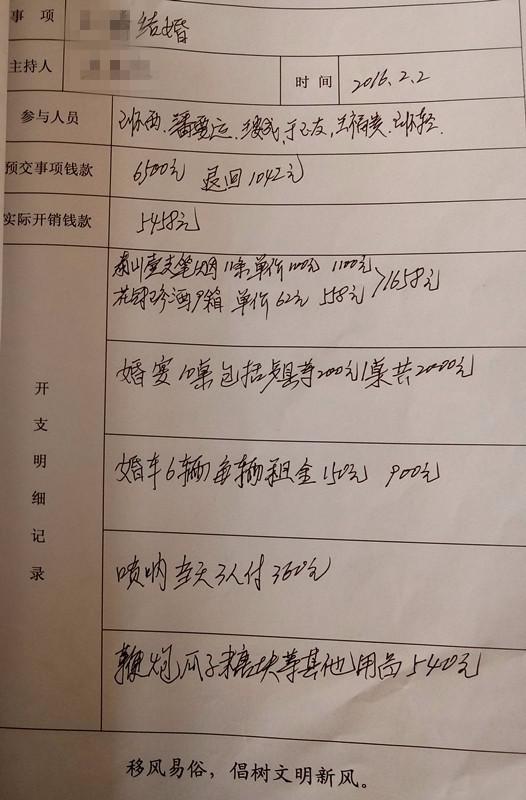 事 项 结婚
主持人 时 间 2016.2.2
参与人员
预交事项钱款 6500元 退回1042元
实际开销钱款 5458元
开支明细记录
泰山 烟11条单价100元 1100元
酒9箱 单价62元 558元 >1658元
婚宴10桌包括 等200元1桌共2000元
婚车6辆每辆租金150元 900元
唢呐 3人付360元
鞭炮瓜子糖块等其他用品540元
移风易俗，倡树文明新风。